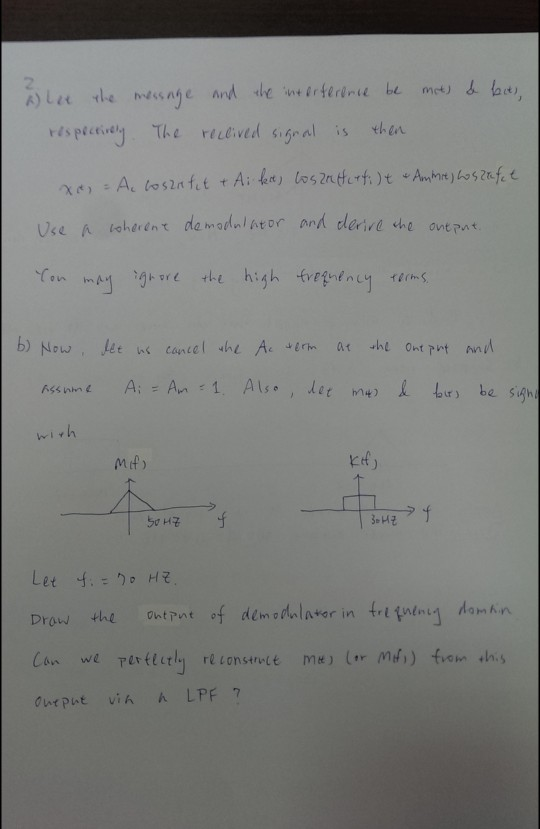 2
a) Let the message and the interference be m(t) & k(t),
respectively. The received signal is then
x(t) = Ac cos2πfct + Ai·k(t) cos2π(fc+fi)t + Amm(t)cos2πfct
Use a coherent demodulator and derive the output.
You may ignore the high frequency terms.
b) Now, let us cancel the Ac term at the output and
assume Ai = Am = 1. Also, let m(t) & k(t) be sign
with
M(f) K(f)
50 HZ f 30HZ f
Let fi = 70 HZ.
Draw the output of demodulator in frequency domain
Can we perfectly reconstruct m(t) (or M(f)) from this
output via a LPF ?